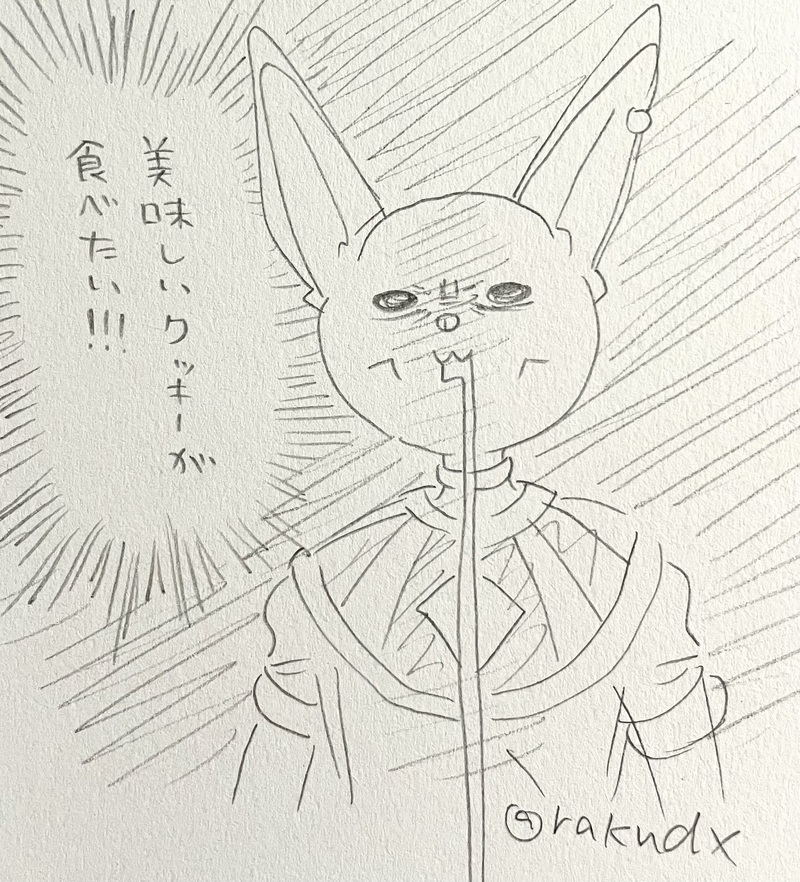 美味しいクッキーが
食べたい!!!
@rakudx